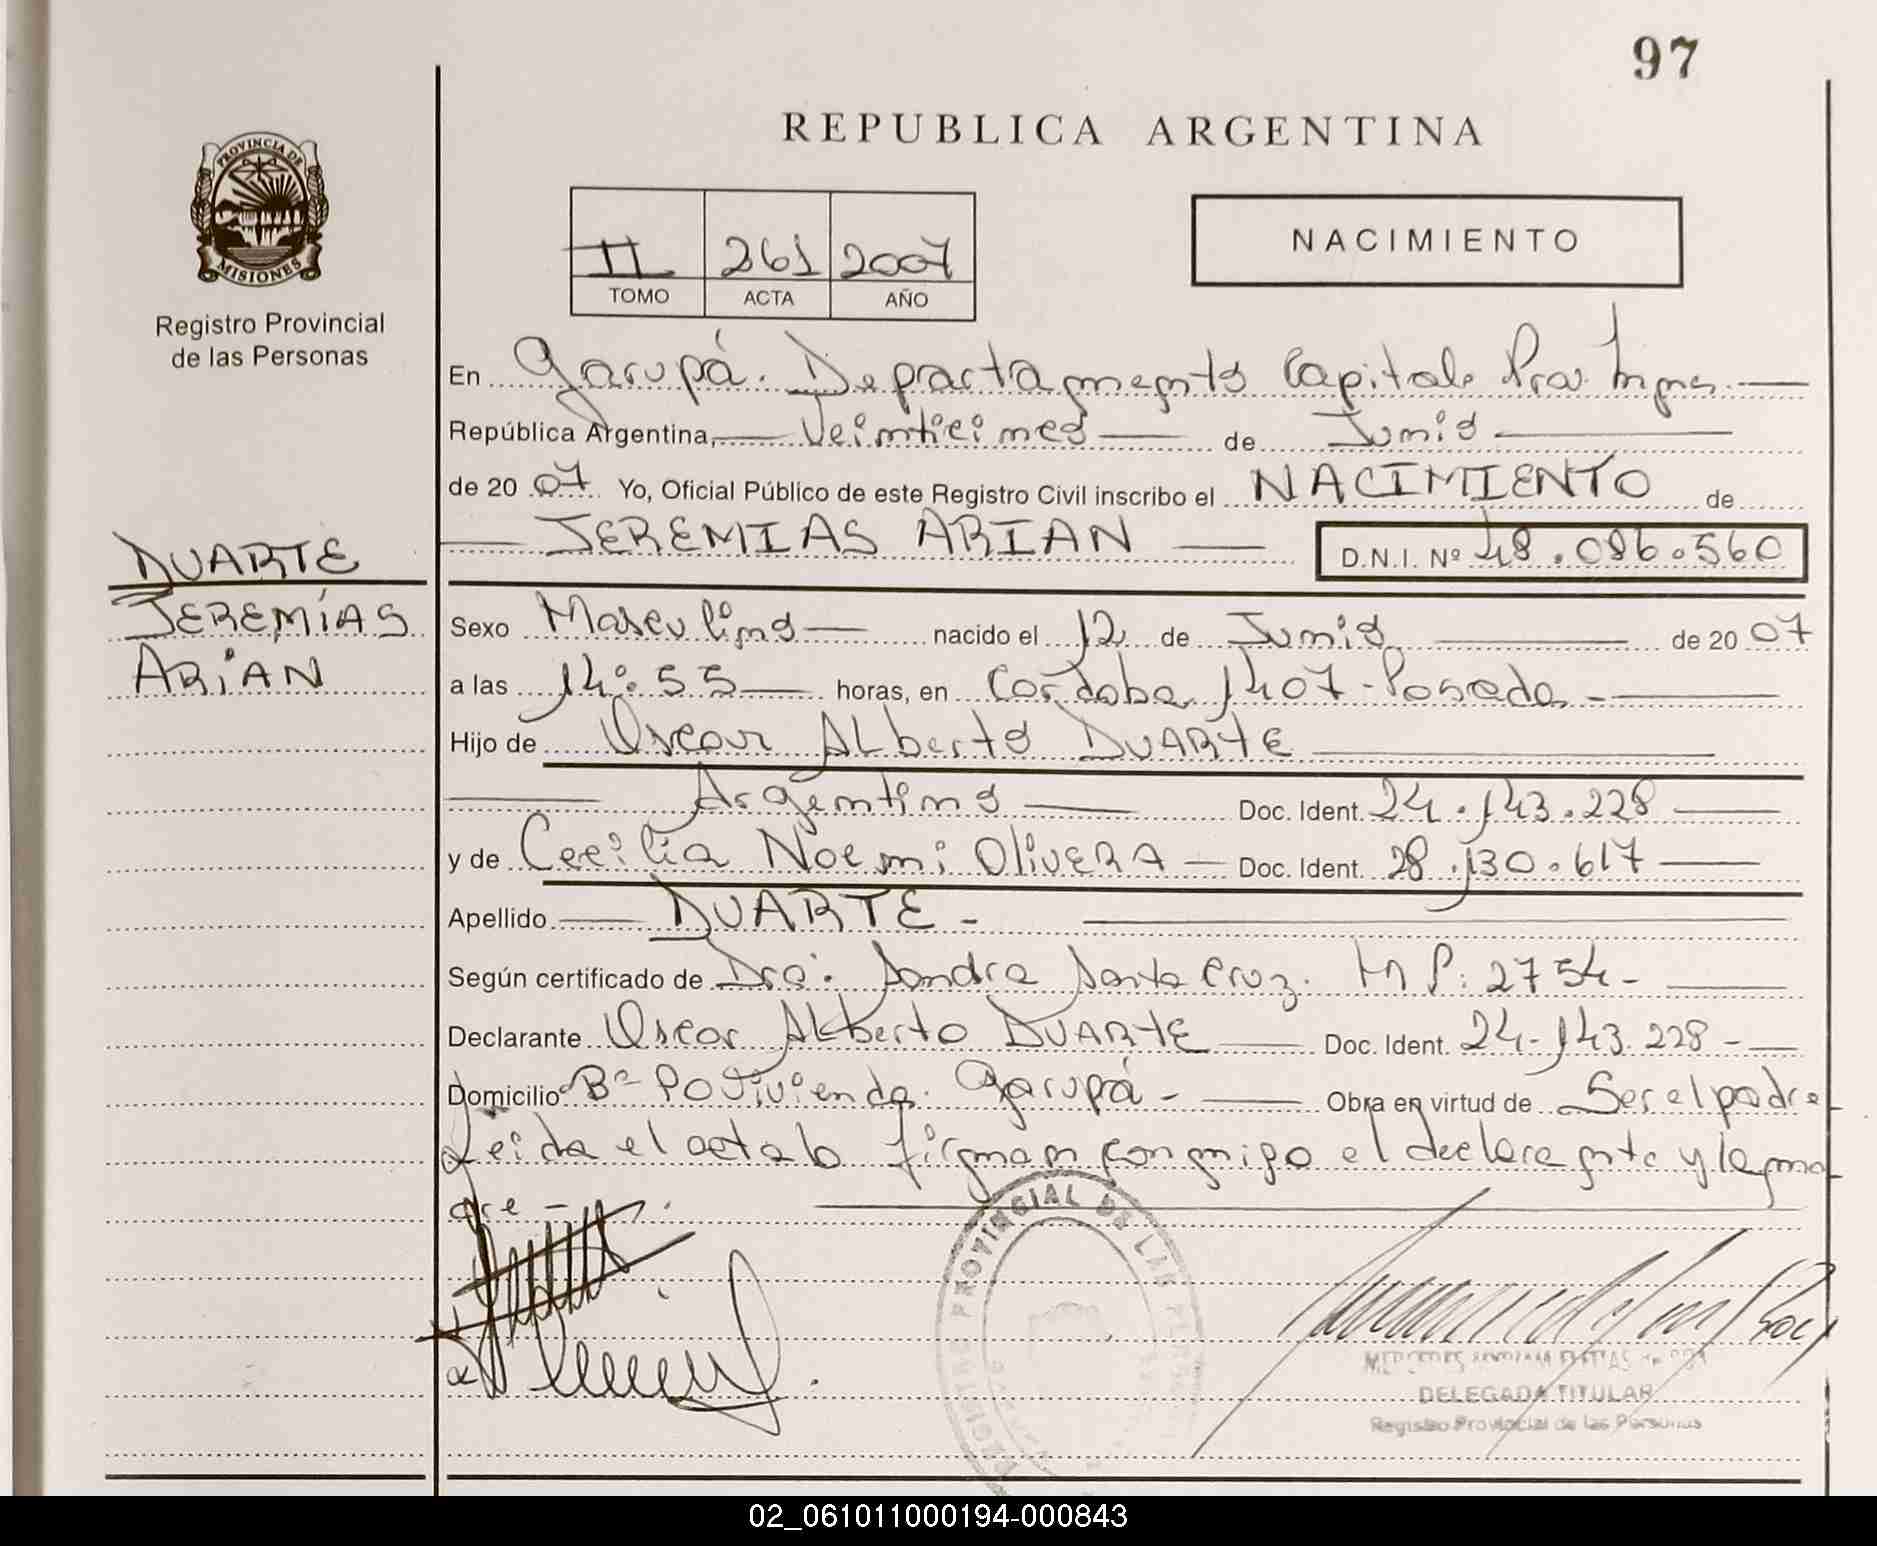 97
REPUBLICA ARGENTINA
PROVINCIA DE
MISIONES
Registro Provincial
de las Personas
II 261 2007
TOMO ACTA AÑO
NACIMIENTO
En Garupá. Departamento Capital. Prov. Mnes.
República Argentina, Veinticinco de Junio
de 20 07 Yo, Oficial Público de este Registro Civil inscribo el NACIMIENTO de
JEREMIAS ARIAN D.N.I. Nº 48.086.560
DUARTE
JEREMÍAS
ARIAN
Sexo Masculino nacido el 12 de Junio de 20 07
a las 14:55 horas, en Cordoba 1407-Posadas-
Hijo de Oscar ALberto DUARTE
Argentino Doc. Ident. 24.143.228
y de Cecilia Noemi OlivERA Doc. Ident. 28.130.617
Apellido DUARTE-
Según certificado de Dra: Sandra Santa Cruz. M P: 2754-
Declarante Oscar ALberto DUARTE Doc. Ident. 24-143.228-
Domicilio Bº Garupá- Obra en virtud de Ser el padre
Leida el acta la firman conmigo el declarante y la ma
dre-
REGISTRO PROVINCIAL DE LAS PERSONAS
DELEGADA TITULAR
Registro Provincial de las Personas
02_061011000194-000843